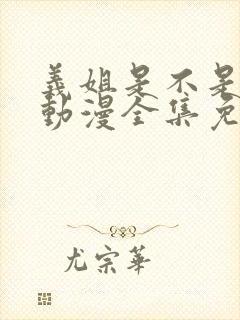 義姐是不是
動漫全集免
尤宗華